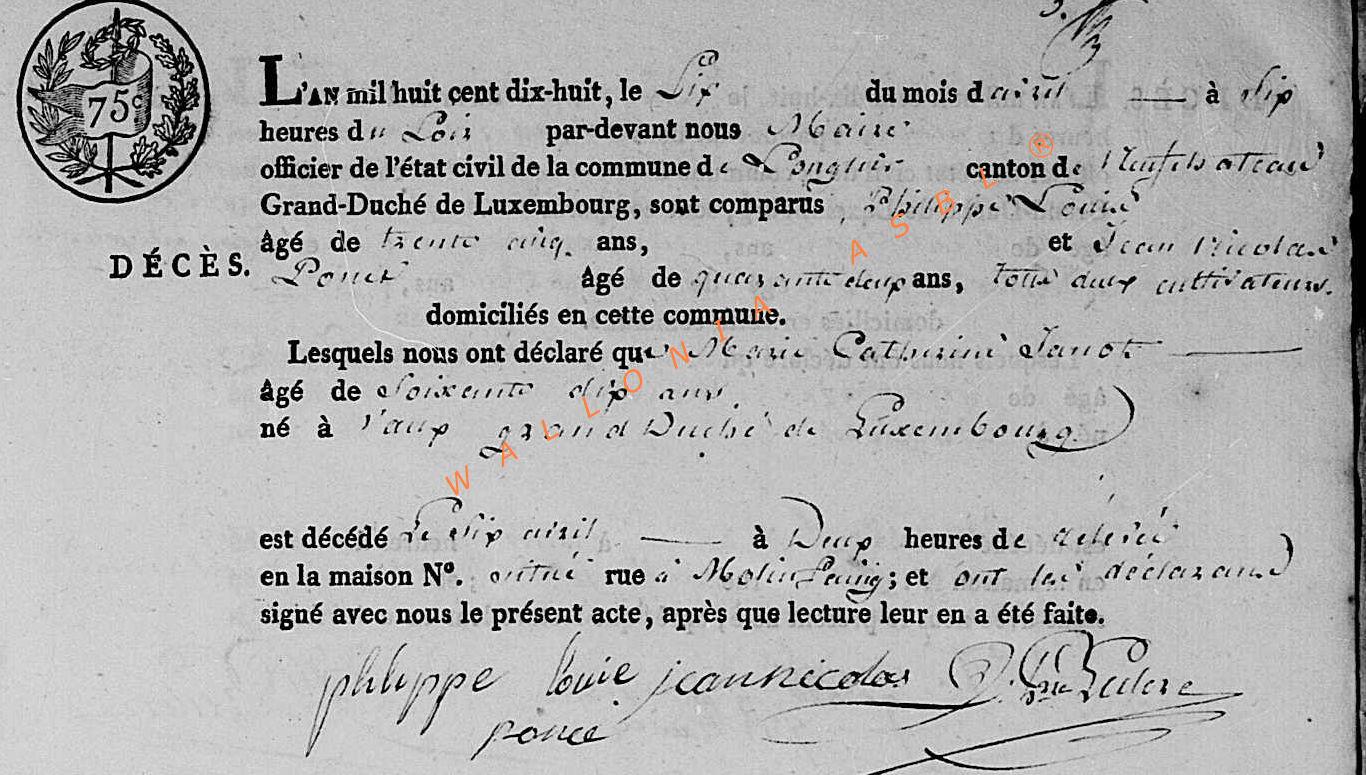 75c
L'AN mil huit cent dix-huit, le Six du mois d avril à Six
heures du Soir par-devant nous Maire
officier de l'état civil de la commune de Longlier canton de Neufchateau
Grand-Duché de Luxembourg, sont comparus Philippe Louis
âgé de trente cinq ans, et Jean Nicolas
DÉCÈS.
Poncé âgé de quarante deux ans, tous deux cultivateurs.
domiciliés en cette commune.
Lesquels nous ont déclaré que Marie Catherine Janot
âgé de Soixante dix ans
né à Vaux grand Duché de Luxembourg
est décédé Le Six avril à Deux heures de relevée
en la maison N°. située rue à ; et ont les déclarans
signé avec nous le présent acte, après que lecture leur en a été faite.
phlippe louie jean nicolas
poncé
WALLONIA ASBL ®